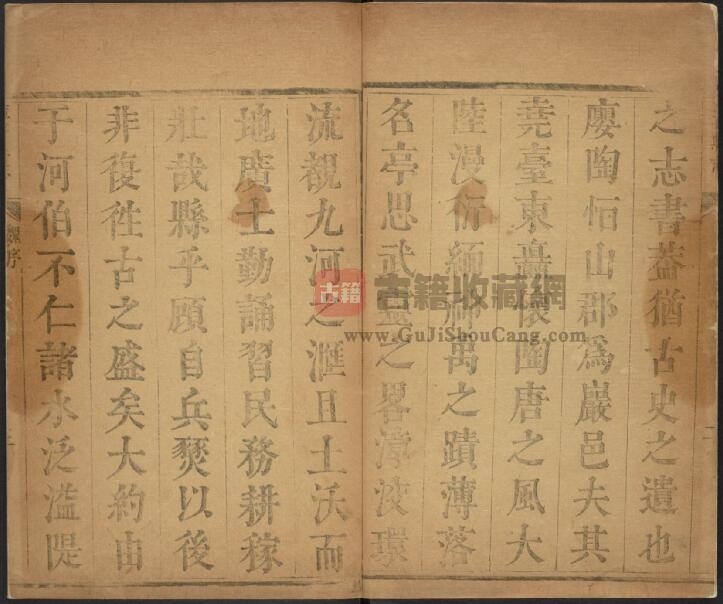 之志書葢猶古史之遺也
廮陶恒山郡爲巖邑夫其
堯臺東矗懷陶唐之風大
陸漫衍緬神禹之蹟薄落
名亭思武靈之畧漳洨環
流觀九河之滙且土沃而
地廣士勤誦習民務耕稼
壯哉縣乎顧自兵燹以後
非復徃古之盛矣大約由
于河伯不仁諸水泛滥隄
序
古籍 古籍收藏網
www.GuJiShouCang.com